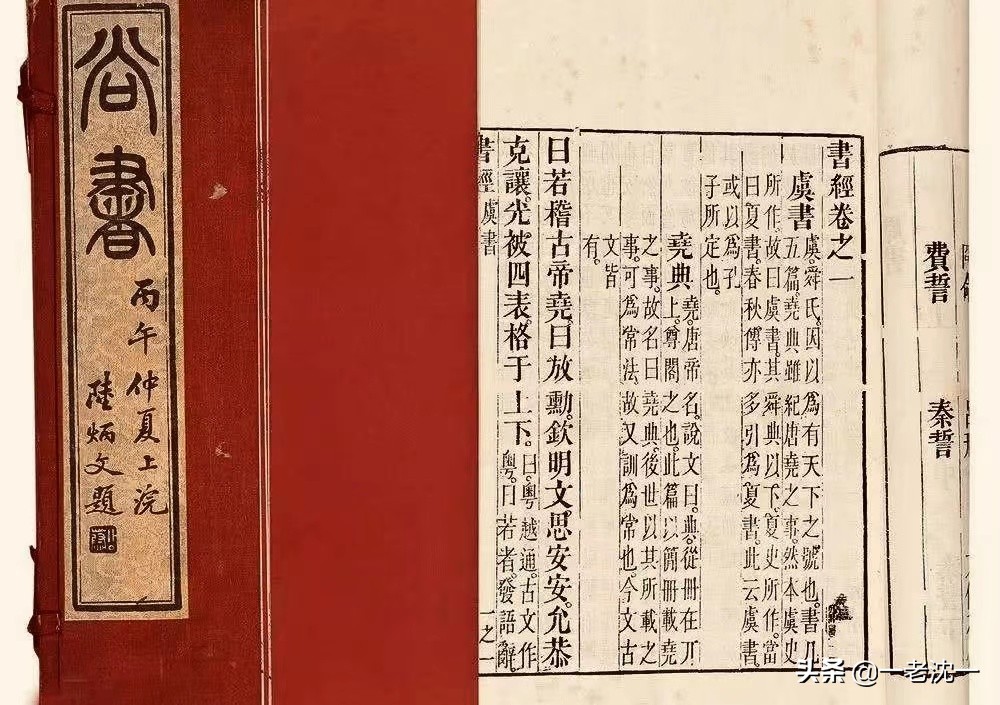 尚書
丙午仲夏上浣
陸炳文題
書經卷之一
虞書 虞。舜氏。因以爲有天下之號也。書凡
五篇。堯典雖紀唐堯之事。然本虞史
所作。故曰虞書。其舜典以下。夏史所作。當
曰夏書。春秋傳亦多引爲夏書。此云虞書。
或以爲孔
子所定也。
堯典 堯。唐帝名。說文曰。典。從冊在丌
上。尊閣之也。此篇以簡冊載堯
之事。故名曰堯典。後世以其所載之
事。可爲常法。故又訓爲常也。今文古
文皆
有。
曰若稽古帝堯。曰放勳。欽明文思安安。允恭
克讓。光被四表。格于上下。曰。粵越通。古文作
粵。曰若者。發語辭。
書經 虞書 一之一
費誓
秦誓
头条 @一老沈一